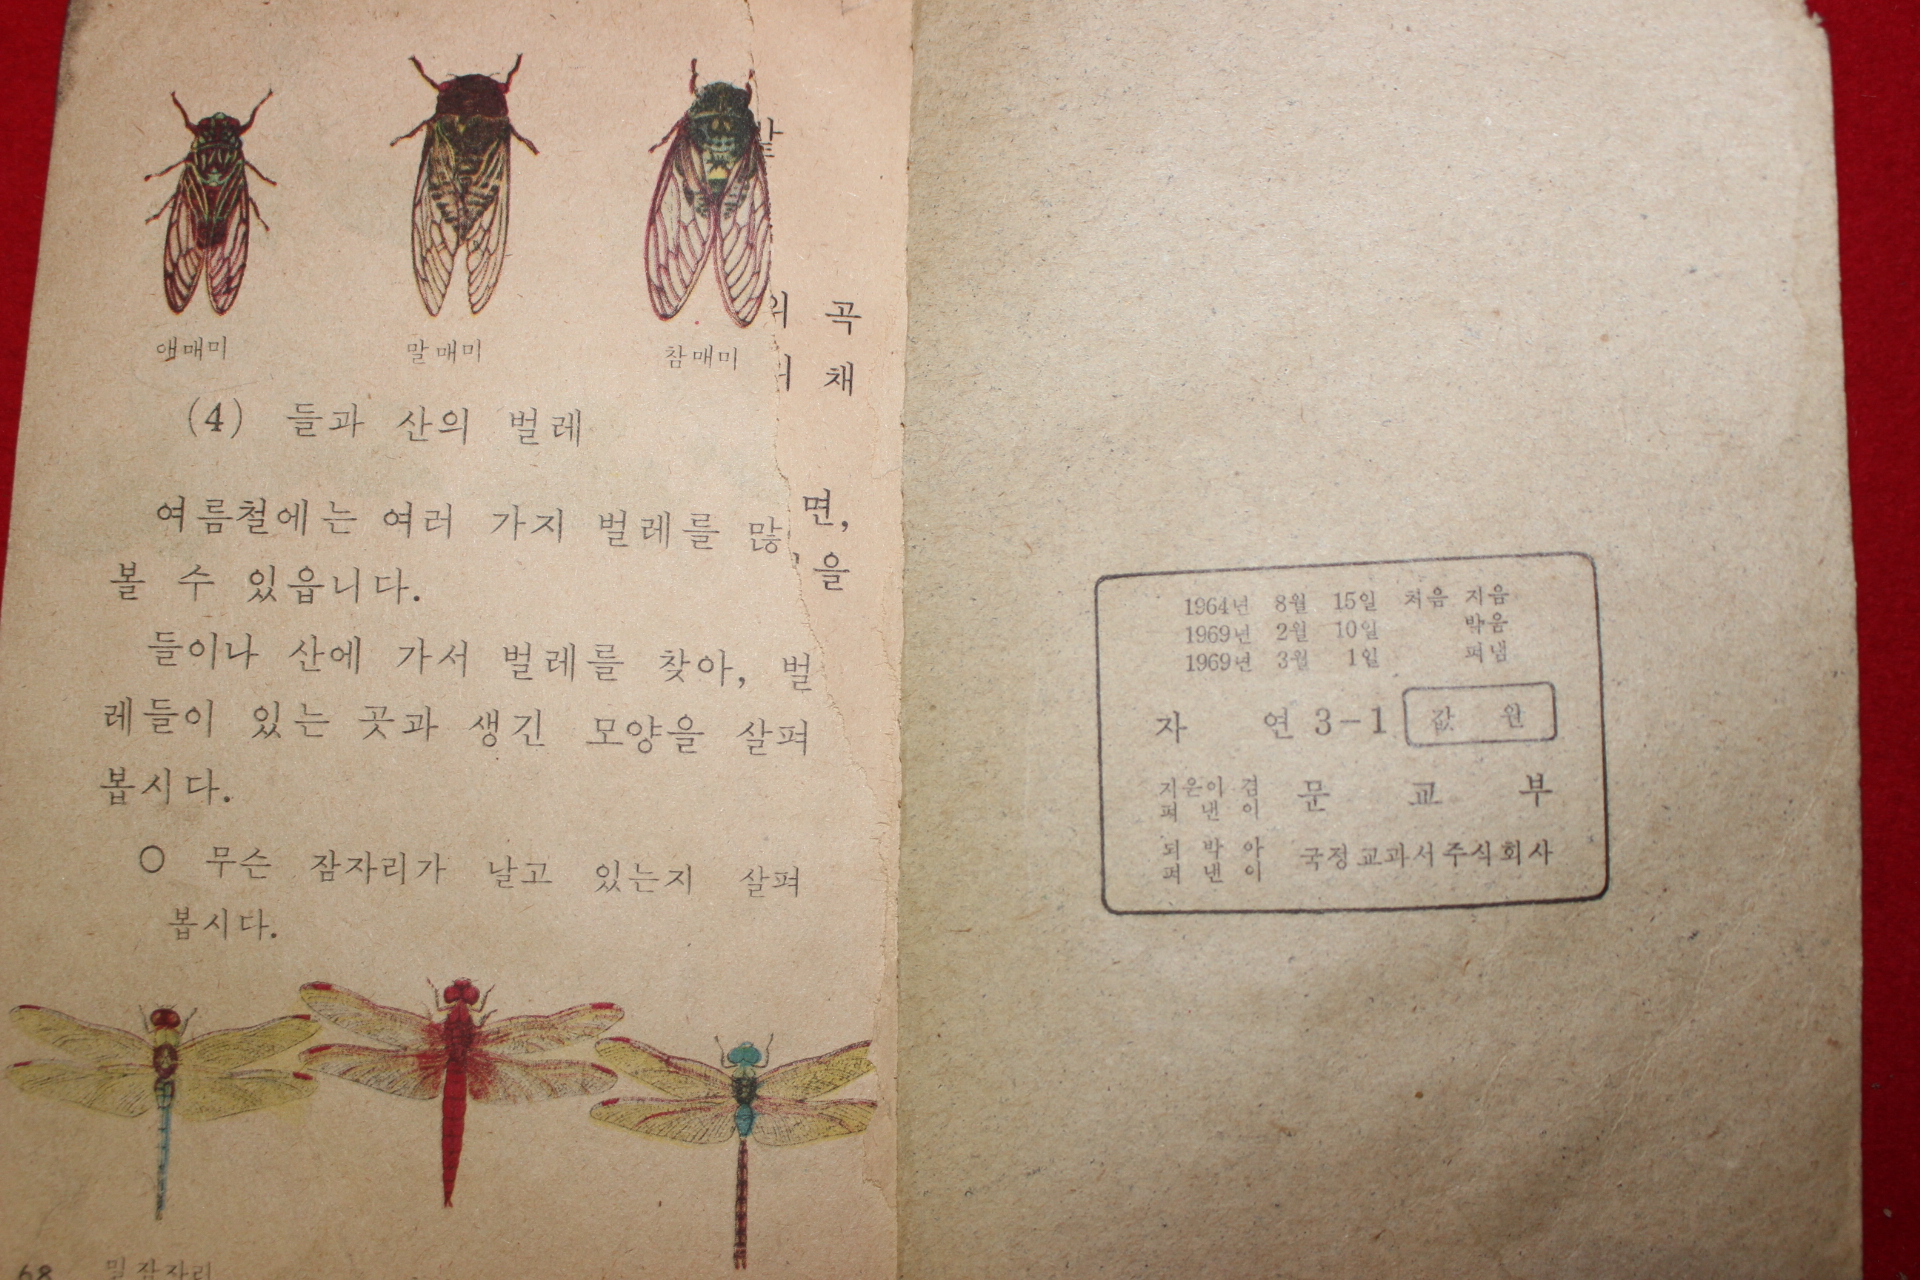 애매미 말매미 참매미
(4) 들과 산의 벌레
여름철에는 여러 가지 벌레를 많
볼 수 있읍니다.
들이나 산에 가서 벌레를 찾아, 벌
레들이 있는 곳과 생긴 모양을 살펴
봅시다.
○ 무슨 잠자리가 날고 있는지 살펴
봅시다.
68 밀잠자리
곡
채
면,
을
1964년 8월 15일 처음 지음
1969년 2월 10일 박음
1969년 3월 1일 펴냄
자 연 3-1 값 원
지은이 겸
펴 낸 이 문 교 부
되 박 아
펴 낸 이 국정교과서주식회사